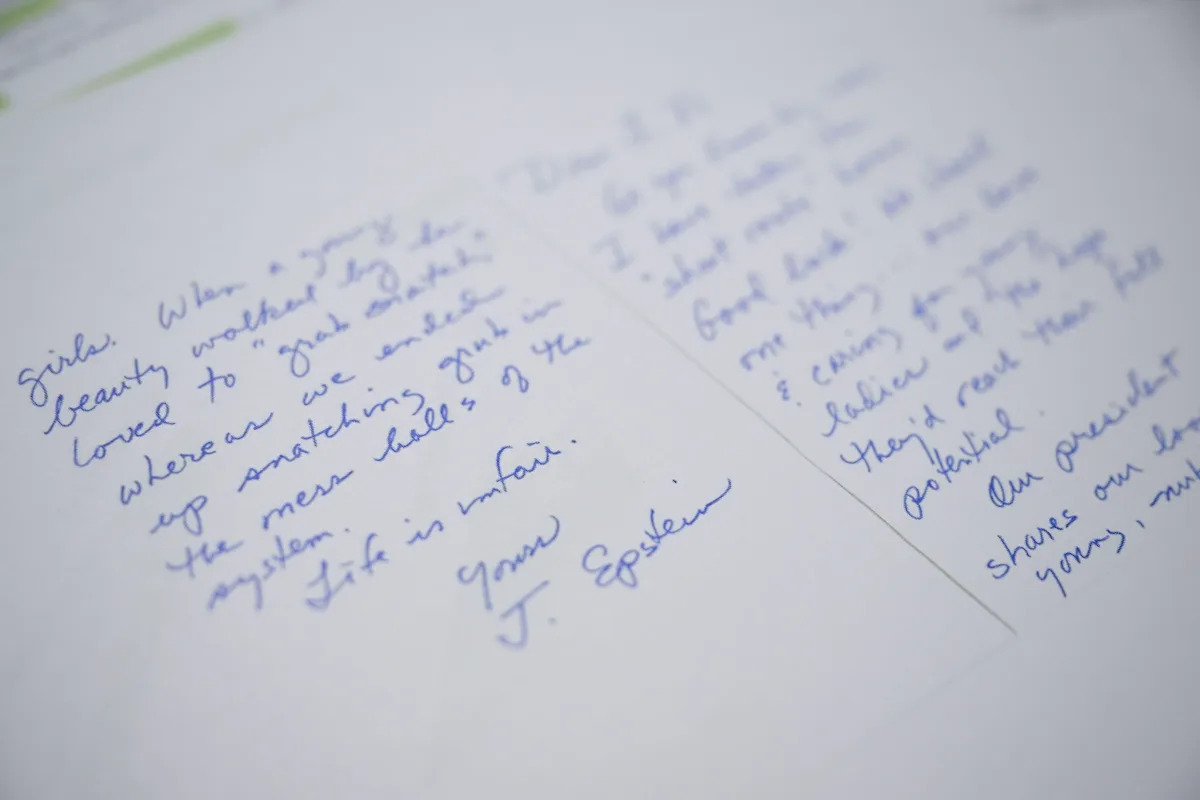 Dear L. N.
as you know by now
I have taken the
"short route" home.
Good luck! We shared
one thing... our love
& caring for young
ladies and the hope
they'd reach their full
potential.
Our president
shares our love
young, nub
girls. When a young
beauty walked by he
loved to "grab snatch,"
whereas we ended
up snatching grub in
the mess halls of the
system.
Life is unfair.
Yours
J. Epstein